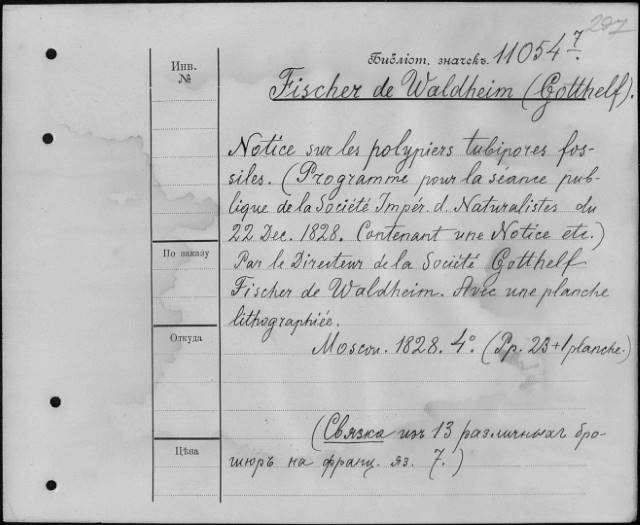 297
Библіот. значекъ. 11054 7.
Инв.
№
Fischer de Waldheim (Gotthelf).
Notice sur les polypiers tubipores fos-
siles. (Programme pour la séance pub-
lique de la Société Impér. d. Naturalistes du
22 Dec. 1828. Contenant une Notice etc.)
По заказу
Par le Directeur de la Société Gotthelf
Fischer de Waldheim. Avec une planche
lithographiée.
Откуда
Moscou. 1828. 4°. (Pp. 23+1 planche.)
(Связка изъ 13 различныхъ бро-
шюръ на франц. яз. 7.)
Цѣна